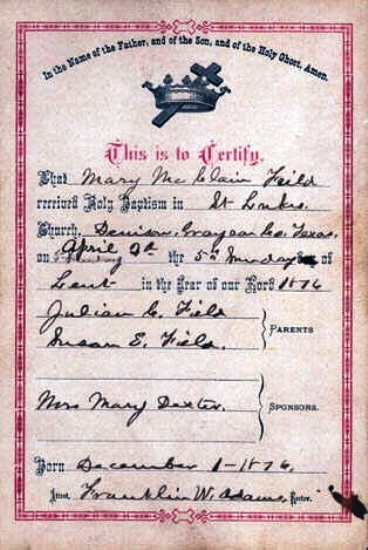 In the Name of the Father, and of the Son, and of the Holy Ghost, Amen.
This is to Certify,
That Mary McClain Feild
received Holy Baptism in St Lukes
Church, Denison, Grayson Co, Texas.
on April 2d the 5th Sunday of
Lent in the Year of our Lord 1876
Julian C. Field
Susan E. Field.
PARENTS
Mrs Mary Dexter.
SPONSORS.
Born December 1-1876,
Attest, Franklin W. Adams, Rector.